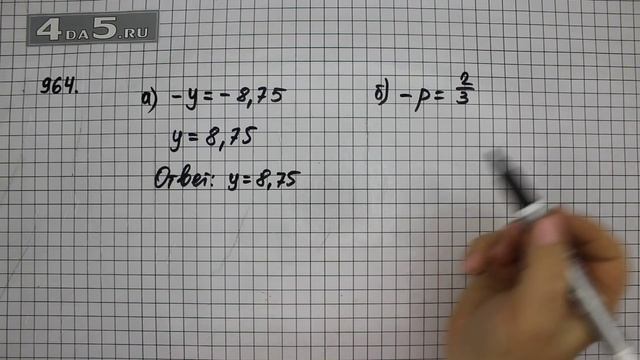 4DA5.RU
964.
а) -y = -8,75
y = 8,75
Ответ: y = 8,75
б) -p = 2/3